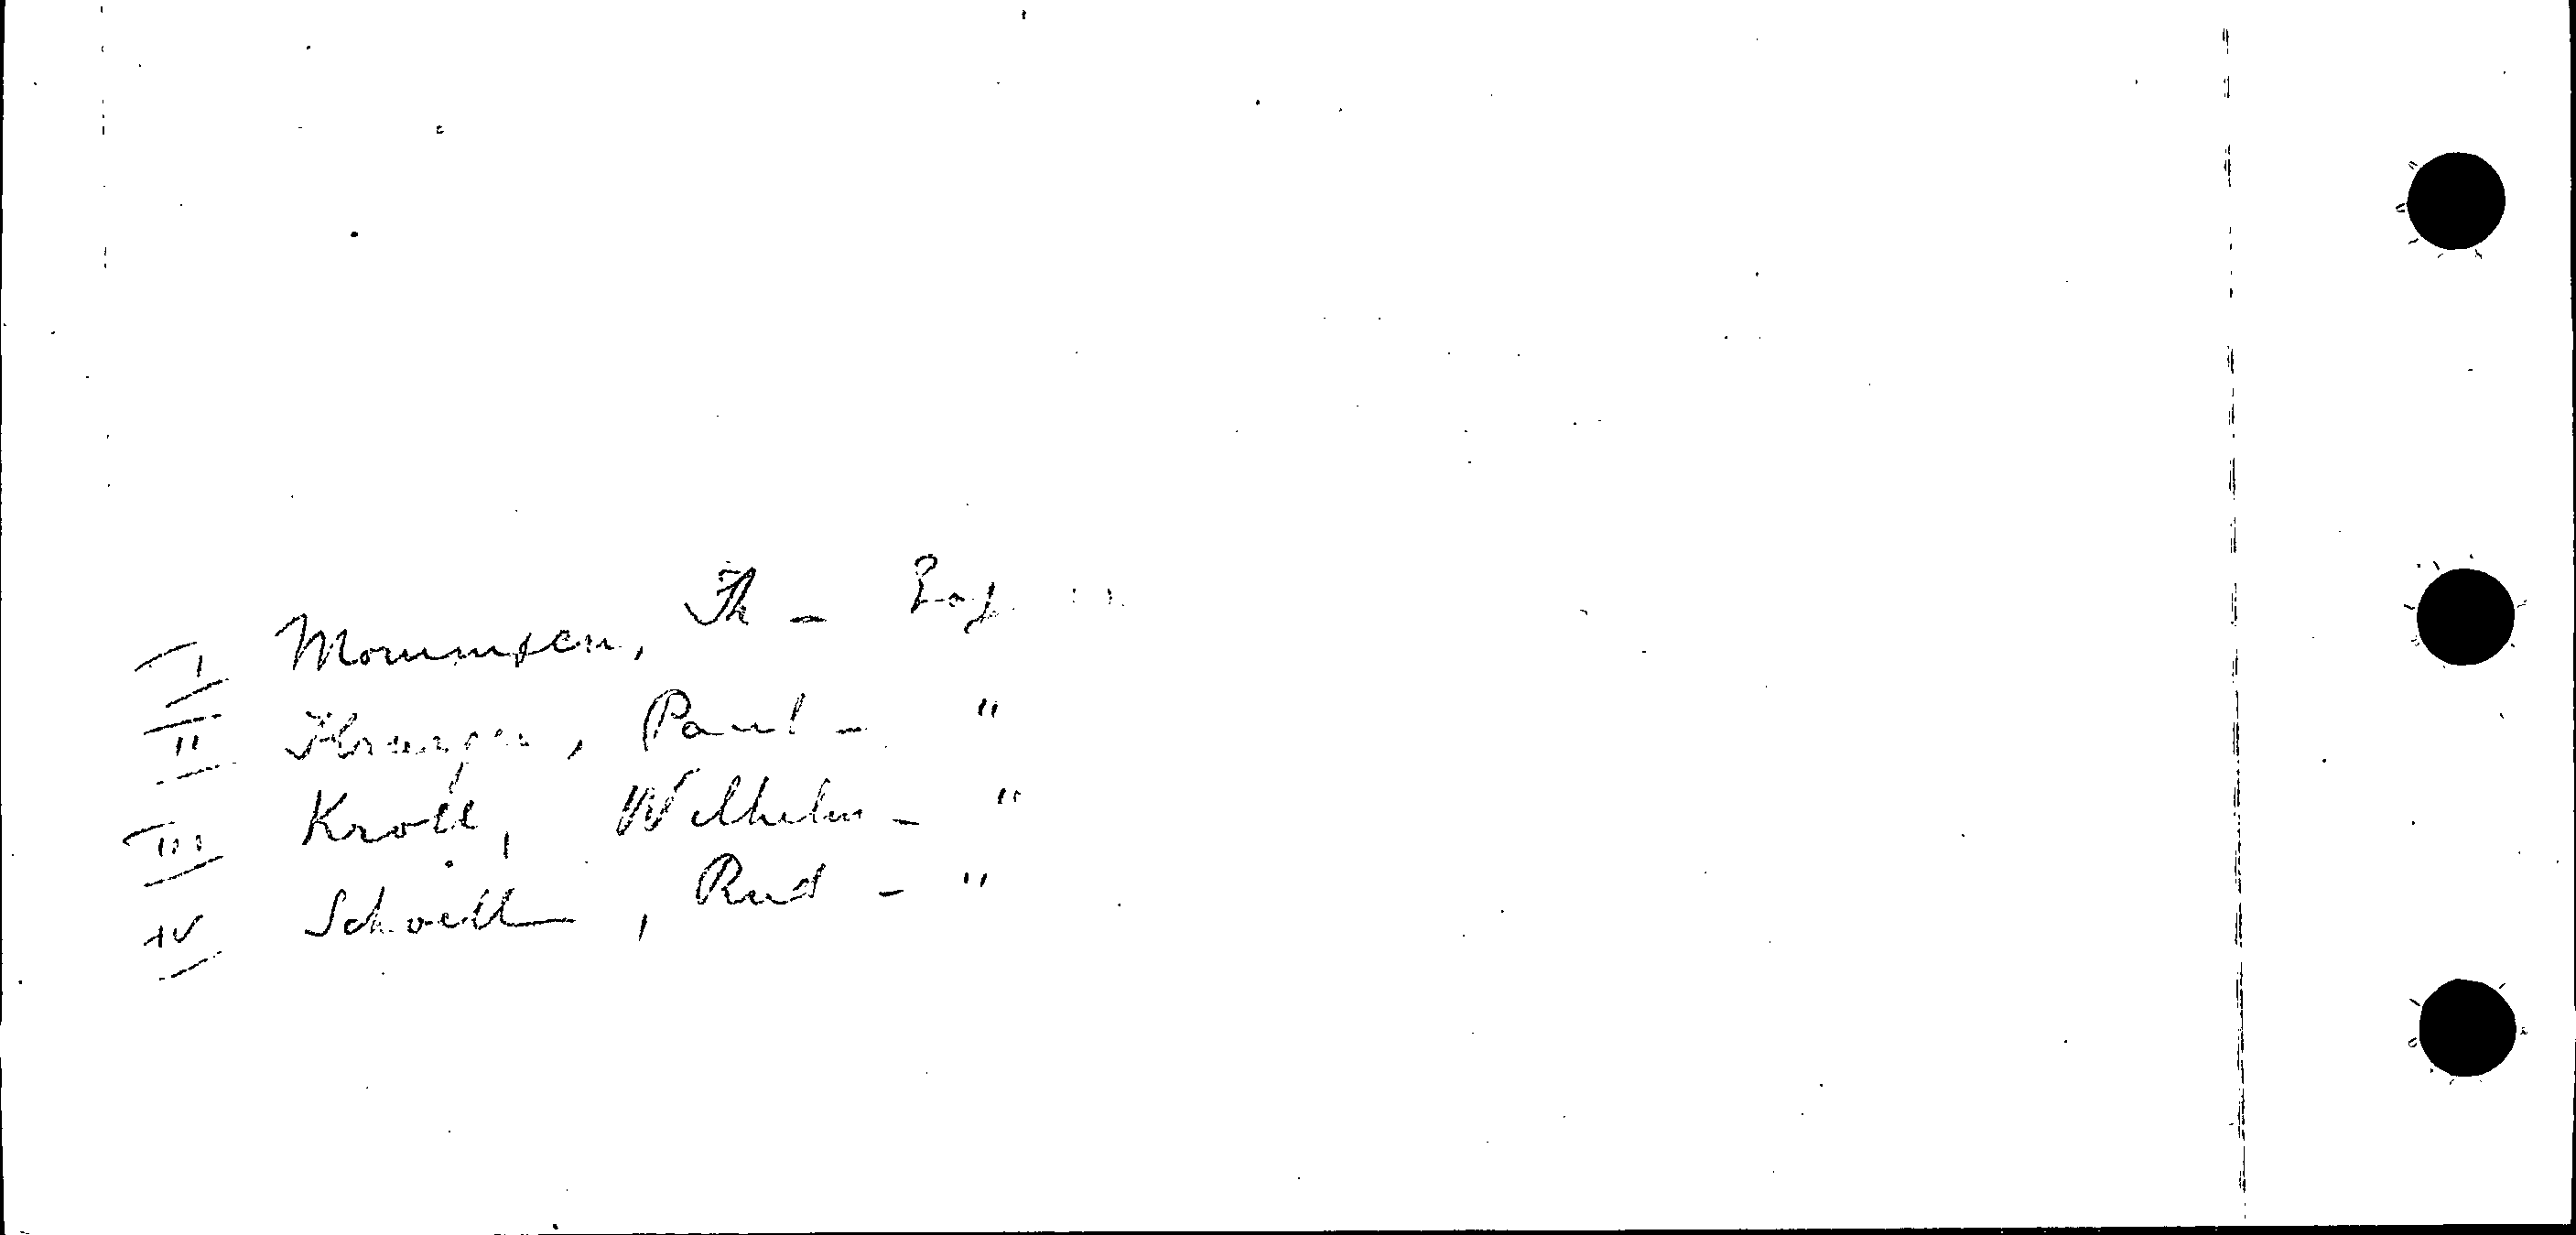 I Mommsen, Th -
II Krueger, Paul - "
III Kroll, Wilhelm - "
IV Schoell, Rud - "